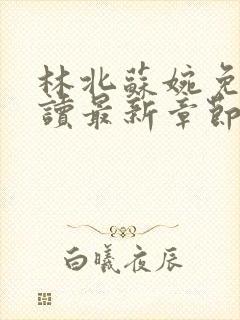 林北蘇婉免
讀最新章節
白曦夜辰